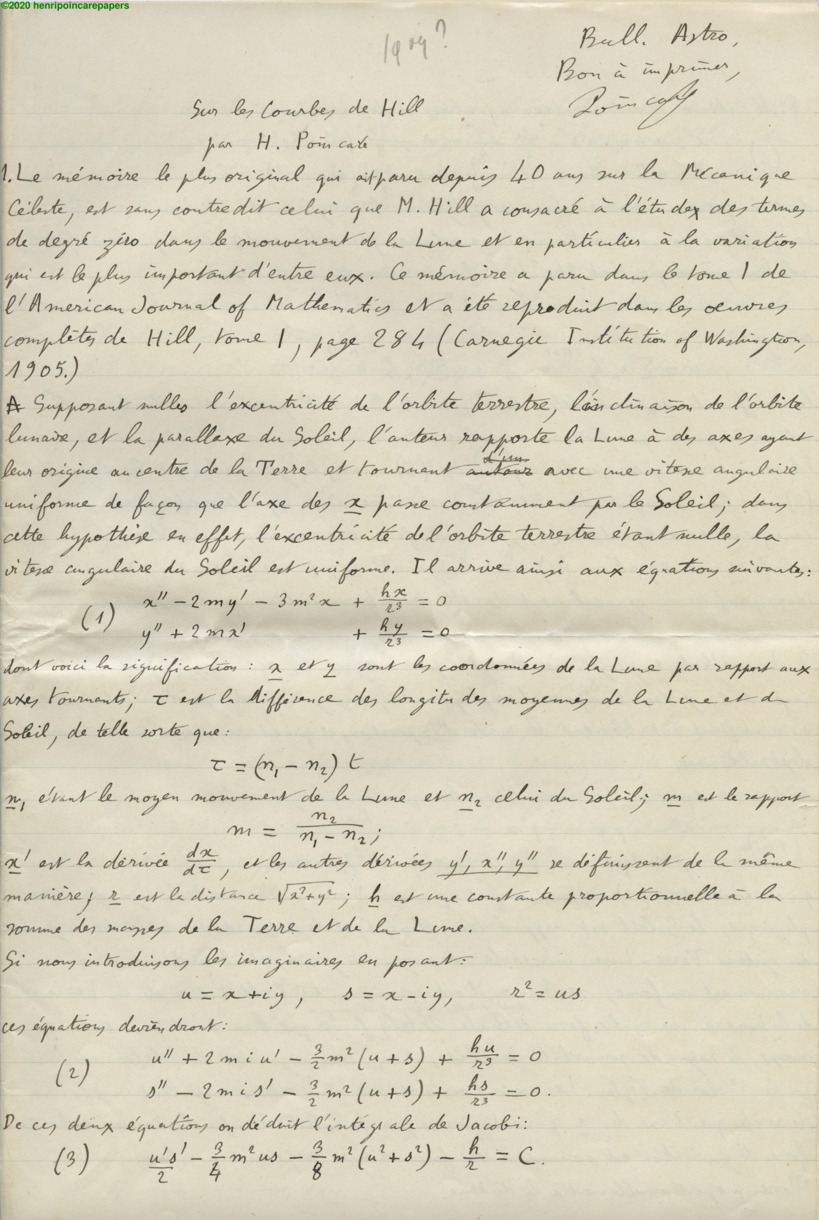 ©2020 henripoincarepapers
1909?
Bull. Astro,
Bon à imprimer,
Poincaré
Sur les Courbes de Hill
par H. Poincaré
1. Le mémoire le plus original qui ait paru depuis 40 ans sur la Mécanique
Céleste, est sans contredit celui que M. Hill a consacré à l'étude des termes
de degré zéro dans le mouvement de la Lune et en particulier à la variation
qui est le plus important d'entre eux. Ce mémoire a paru dans le tome 1 de
l'American Journal of Mathematics et a été reproduit dans les œuvres
complètes de Hill, tome 1, page 284 (Carnegie Institution of Washington,
1905.)
Supposant nulles l'excentricité de l'orbite terrestre, l'inclinaison de l'orbite
lunaire, et la parallaxe du Soleil, l'auteur rapporte la Lune à des axes ayant
leur origine au centre de la Terre et tournant autour d'un avec une vitesse angulaire
uniforme de façon que l'axe des x passe constamment par le Soleil; dans
cette hypothèse en effet, l'excentricité de l'orbite terrestre étant nulle, la
vitesse angulaire du Soleil est uniforme. Il arrive ainsi aux équations suivantes:
(1) x'' - 2my' - 3m²x + hx/r³ = 0
y'' + 2mx' + hy/r³ = 0
dont voici la signification: x et y sont les coordonnées de la Lune par rapport aux
axes tournants; τ est la différence des longitudes moyennes de la Lune et du
Soleil, de telle sorte que:
τ = (n₁ - n₂) t
n₁ étant le moyen mouvement de la Lune et n₂ celui du Soleil; m est le rapport
m = n₂/(n₁ - n₂);
x' est la dérivée dx/dτ, et les autres dérivées y', x'', y'' se définissent de la même
manière; r est la distance √(x²+y²); h est une constante proportionnelle à la
somme des masses de la Terre et de la Lune.
Si nous introduisons les imaginaires en posant:
u = x+iy, s = x-iy, r² = us
ces équations deviendront:
(2) u'' + 2miu' - 3/2 m²(u+s) + hu/r³ = 0
s'' - 2mis' - 3/2 m²(u+s) + hs/r³ = 0.
De ces deux équations on déduit l'intégrale de Jacobi:
(3) u's'/2 - 3/4 m²us - 3/8 m²(u²+s²) - h/r = C.